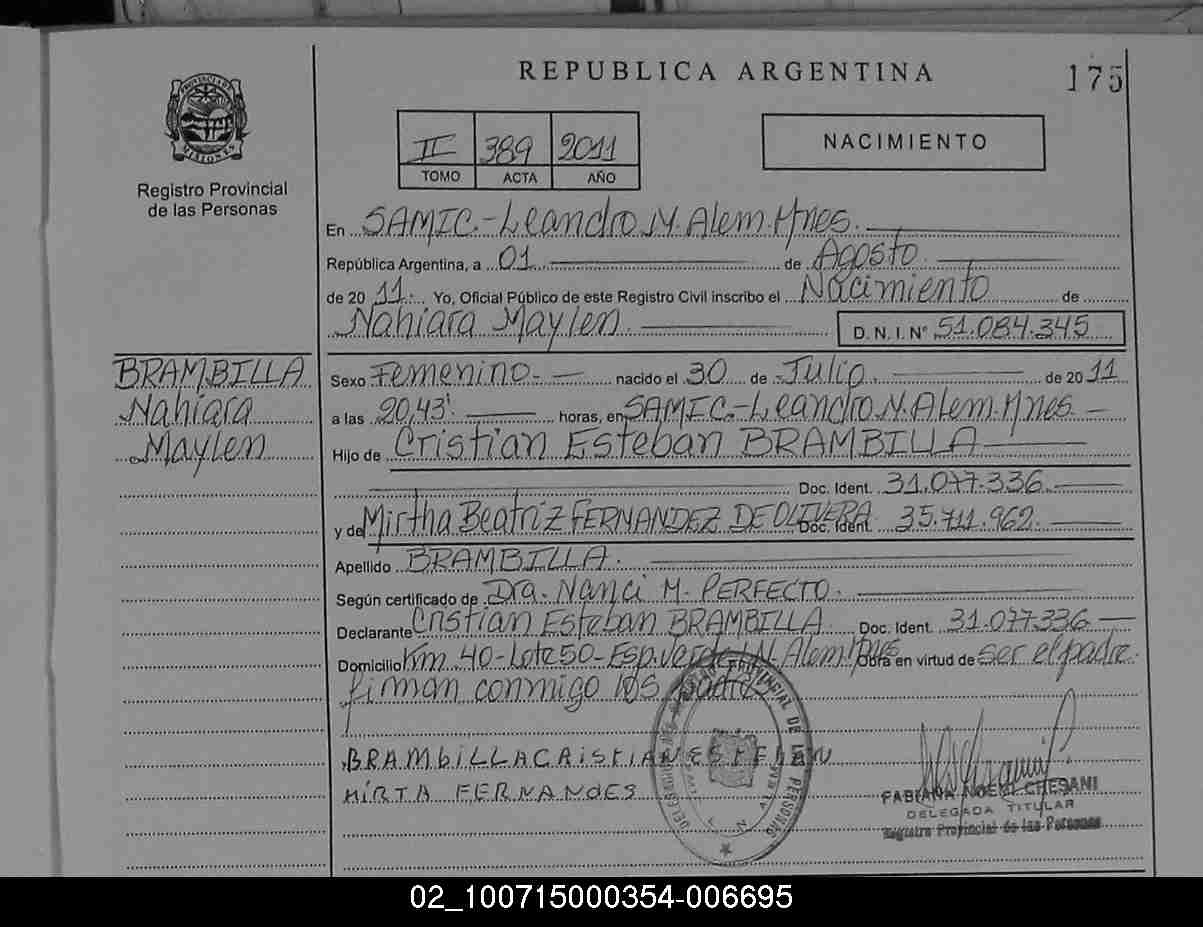 REPUBLICA ARGENTINA
175
PROVINCIA DE
MISIONES
Registro Provincial
de las Personas
II 389 2011
TOMO ACTA AÑO
NACIMIENTO
En SAMIC.-Leandro N. Alem.Mnes.
República Argentina, a 01 de Agosto
de 2011. Yo, Oficial Público de este Registro Civil inscribo el Nacimiento de
Nahiara Maylen D. N. I. Nº 51.084.345
BRAMBILLA
Nahiara
Maylen
Sexo Femenino.- nacido el 30 de Julio de 2011
a las 20,43' horas, en SAMIC.-Leandro N. Alem.Mnes
Hijo de Cristian Esteban BRAMBILLA
Doc. Ident. 31.077.336.
y de Mirtha Beatriz FERNANDEZ DE OLIVERA Doc. Ident. 35.711.962.
Apellido BRAMBILLA.
Según certificado de Dra. Nanci M. PERFECTO.
Declarante Cristian Esteban BRAMBILLA Doc. Ident. 31.077.336
Domicilio Km 40-Lote 50-Esp. Verde L.N. Alem Mnes Obra en virtud de ser el padre.
firman conmigo los padres
BRAMBiLLA CRiSTiAN ESTEBAN
MiRTA FERNANDES
FABIANA NOEMI CHESANI
DELEGADA TITULAR
Registro Provincial de las Personas
02_100715000354-006695